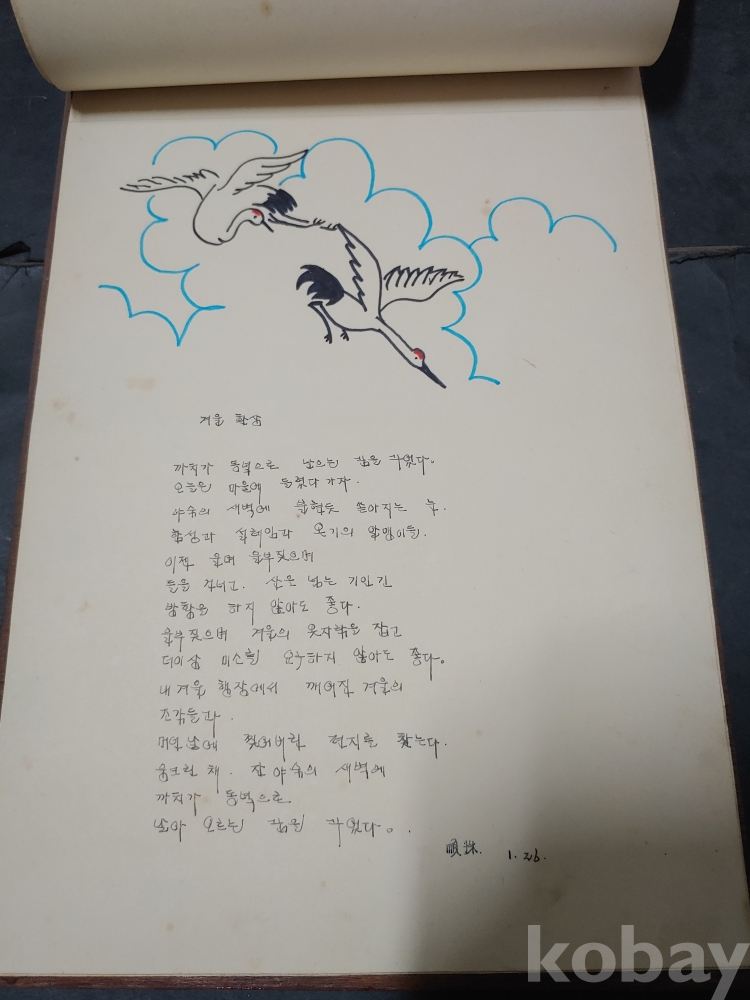 겨울 환상
까치가 동녘으로 날으는 꿈을 꾸었다.
오늘은 마을에 들렀다 가자.
야숙의 새벽에 불현듯 쏟아지는 눈.
함성과 설레임과 온기의 알맹이들.
이젠 울며 울부짖으며
들을 건너고. 산을 넘는 기인긴
방황을 하지 않아도 좋다.
울부짖으며 겨울의 옷자락을 잡고
더이상 미소를 요구하지 않아도 좋다.
내 겨울 행장에서 깨어진 겨울의
조각들과.
먼 날에 찢어버린 편지를 찾는다.
웅크린 채. 잔 야숙의 새벽에
까치가 동녘으로
날아 오르는 꿈을 꾸었다.
順 1. 26.
kobay